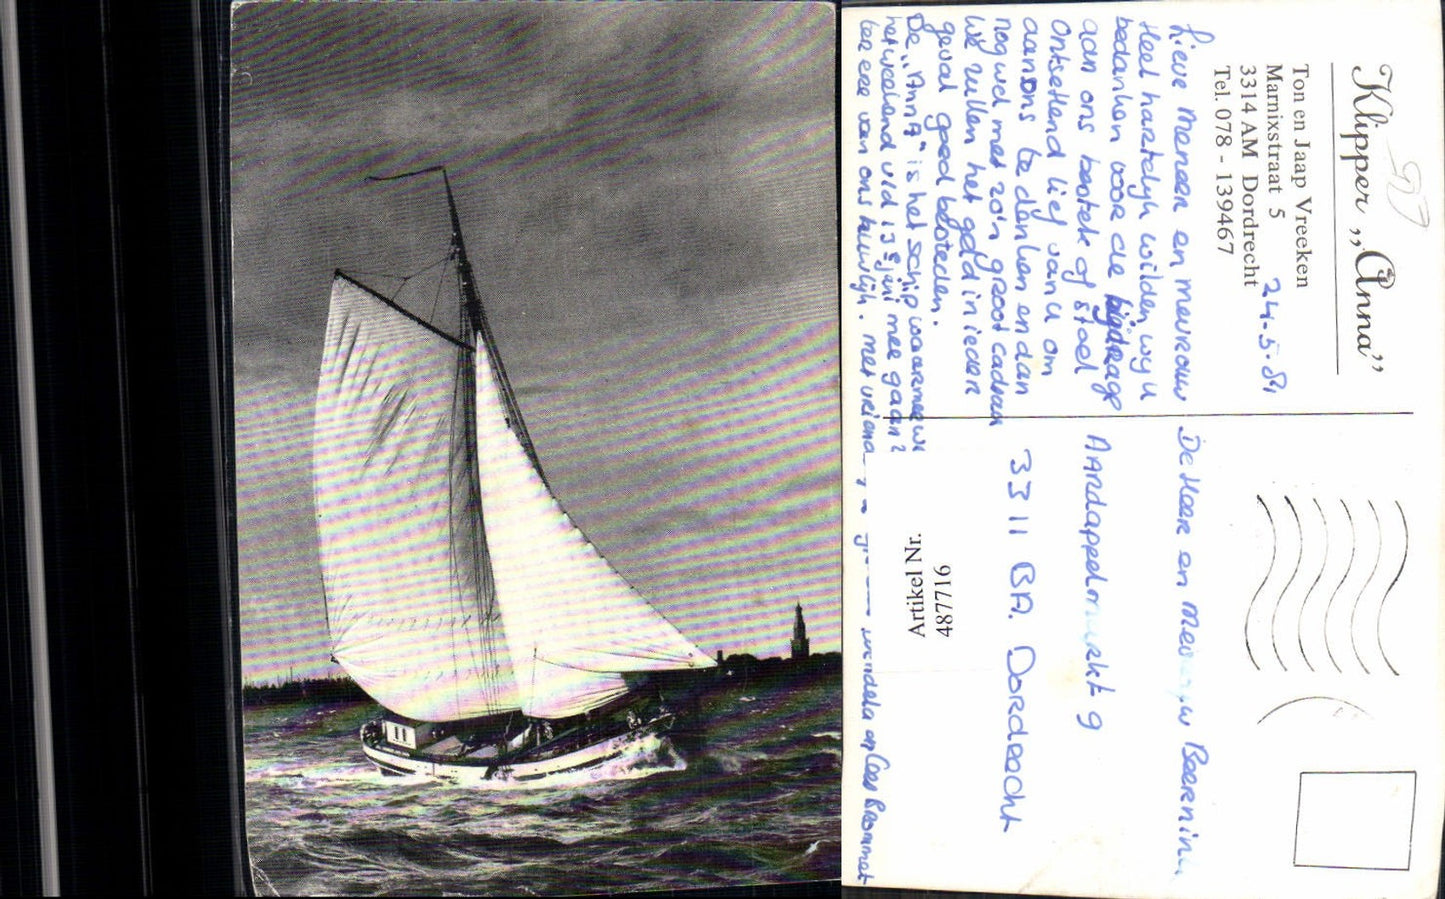 Klipper „Anna”
Ton en Jaap Vreeken
Marnixstraat 5
3314 AM Dordrecht
Tel. 078 - 139467
24-5-84
Lieve meneer en mevrouw
Heel hartelyk wilden wy u
bedanken voor de bijdrage
aan ons bankstel of stoel
Ontzettend lief van u om
aan ons te denken en dan
nog wel met zo'n groot cadeau
We zullen het geld in ieder
geval goed besteden.
De „Anna” is het schip waarmee we
het weekend v/d 13 juni mee gaan
ter ere van ons huwlijk. met vriend
en Cees Brommet
De Heer en Mevr
AARDAPPELmarkt 9
3311 BA. DORDRECHT
Artikel Nr.
487716